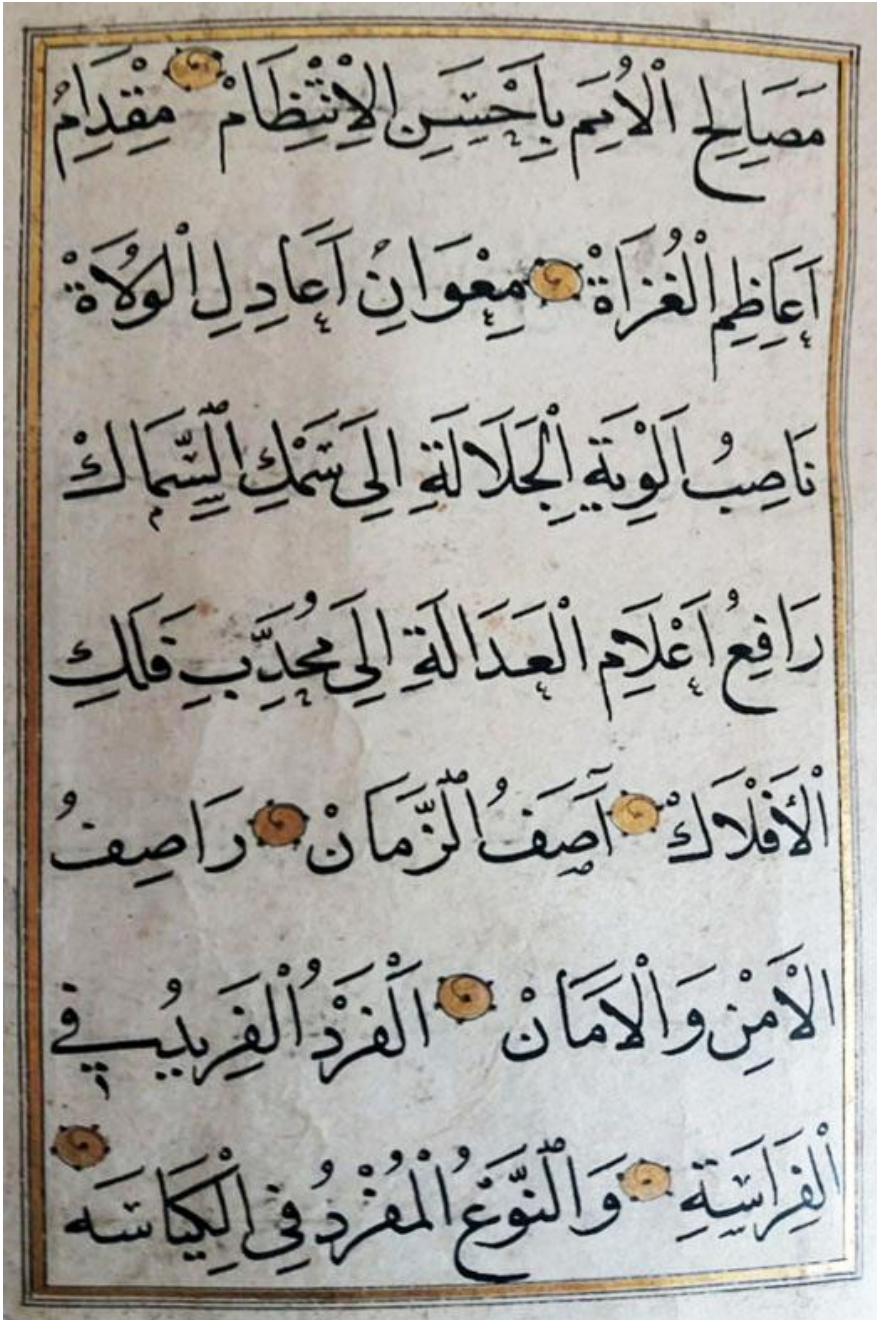 مَصَالِحِ الْاُمَمِ بِاَحْسَنِ الْاِنْتِظَامْ مِقْدَامُ
اَعَاظِمِ الْغُزَاةْ مِعْوَانِ اَعَادِلِ الْوُلَاةْ
نَاصِبُ اَلْوِيَةِ الْجَلَالَةِ اِلَى سَمْكِ السِّمَاكْ
رَافِعُ اَعْلَامِ الْعَدَالَةِ اِلَى مُحَدَّبِ فَلَكِ
الْأَفْلَاكْ آصَفُ الزَّمَانْ رَاصِفُ
الْاَمْنِ وَالْاَمَانْ اَلْفَرْدُ الْفَرِيدُ فِي
الْفِرَاسَةِ وَالنَّوْعُ الْمُفْرَدُ فِى الْكِيَاسَه